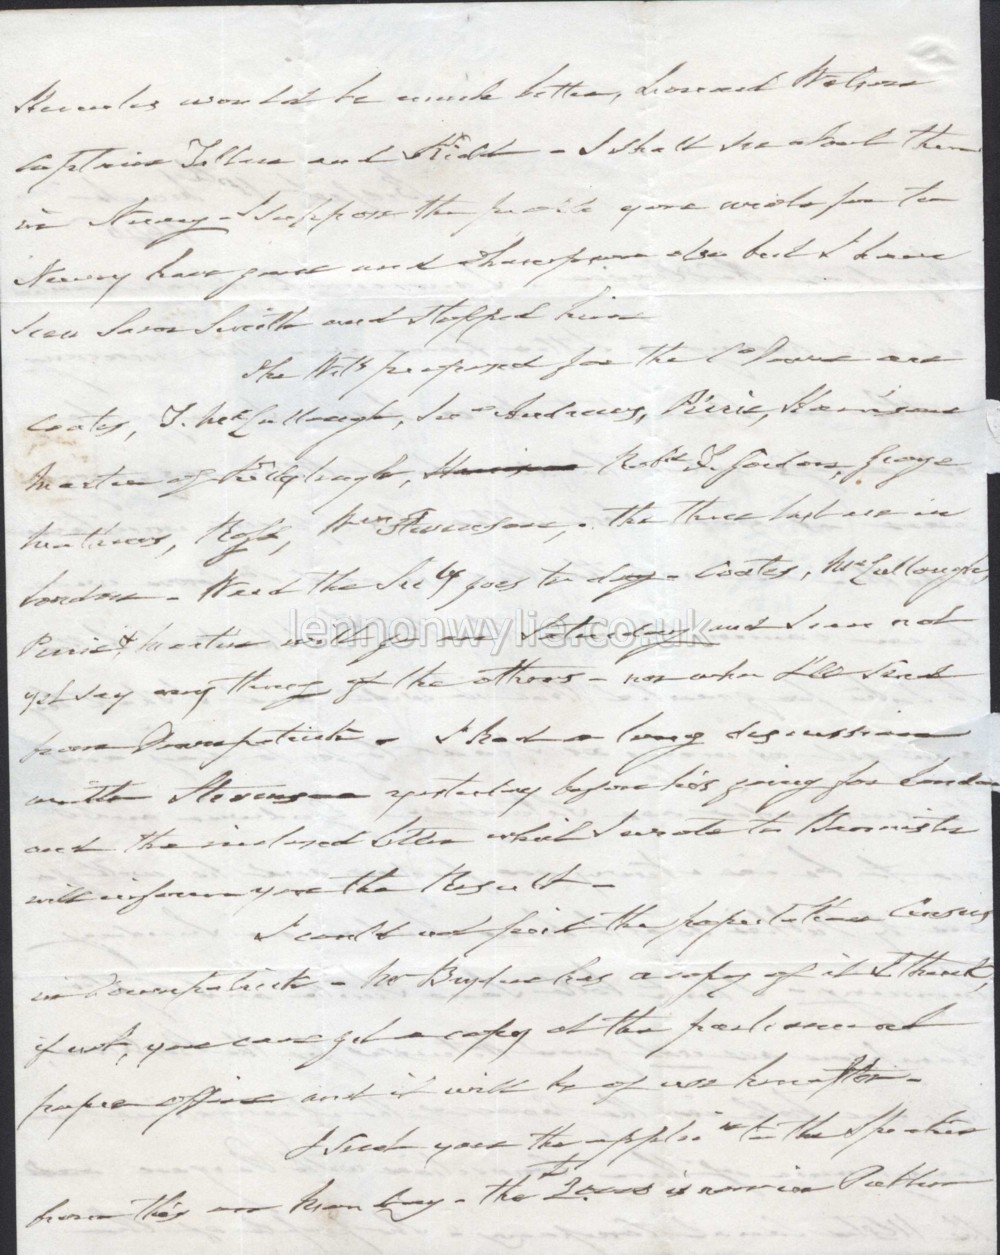 Hercules would be much better, Leonard Watson
Captain Tellus and Kidd - I shall see about them
in Newry - I suppose the people you wish for to
Newry have gone and Thompson also but I have
seen Jason Smith and stopped him
The Wits proposed for the Co Down are
Coates, J. McCullough, Jno Andrews, Pirrie, Harrison
Martin of Killyleagh, Robt J. Gordon, George
Mathews, Ross, Wm Stevenson, the three last are in
London - Ward the Secty goes to day - Coates, McCullough,
Pirrie & Martin will go on Saturday and I can not
yet say any thing of the others - nor when I'll send
from Downpatrick - I had a long discussion
with Stevenson yesterday before his going for London
and the inclosed letter which I wrote to Bannister
will inform you the Result -
I could not find the population Census
in Downpatrick - Mr has a copy of it I think,
if not, you can get a copy at the parliament
paper office and it will be of use hereafter -
I send you the applicn to the Speaker
from this on Monday - the is now in
lennonwylie.co.uk